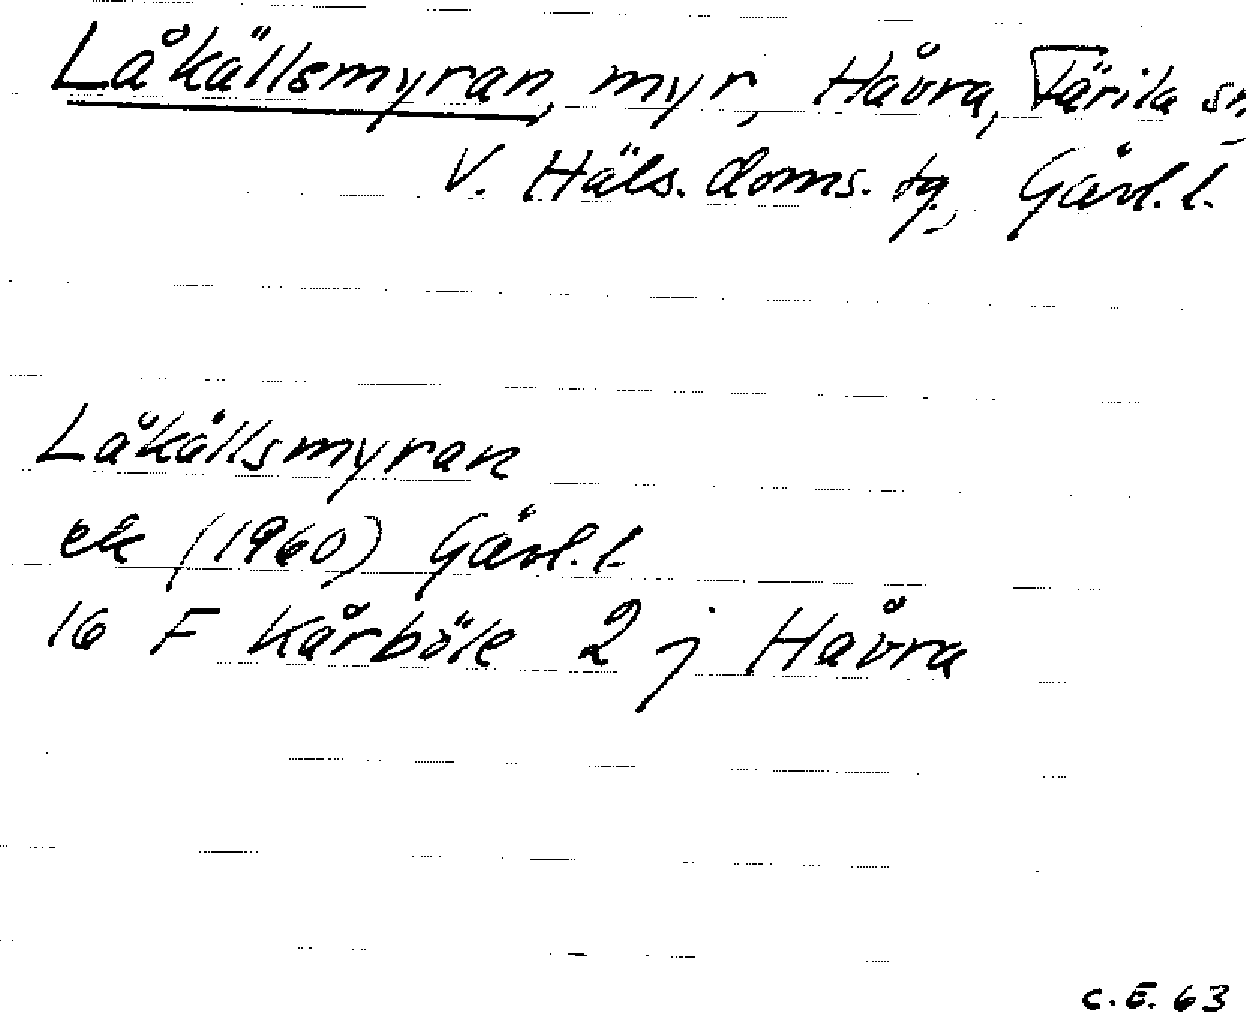 Låkällsmyran, myr, Håvra, Färila sn,
V. Häls. doms. tg., Gävl. l.
Låkällsmyran
ek (1960) Gävl. l.
16 F Kårböle 2 j Håvra
C. E. 63